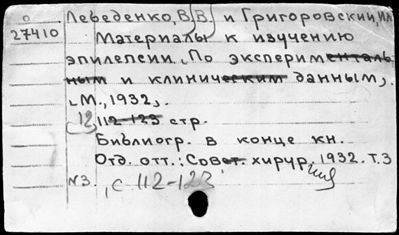 Лебеденко, В.В. и Григоровский, И.М.
27410 Материалы к изучению
эпилепсии. По эксперименталь-
ным и клиническим данным,
М., 1932,
12 112-123 стр.
Библиогр. в конце кн.
Отд. отт.: Совет. хирургия, 1932. Т.3
N3. , с 112-123